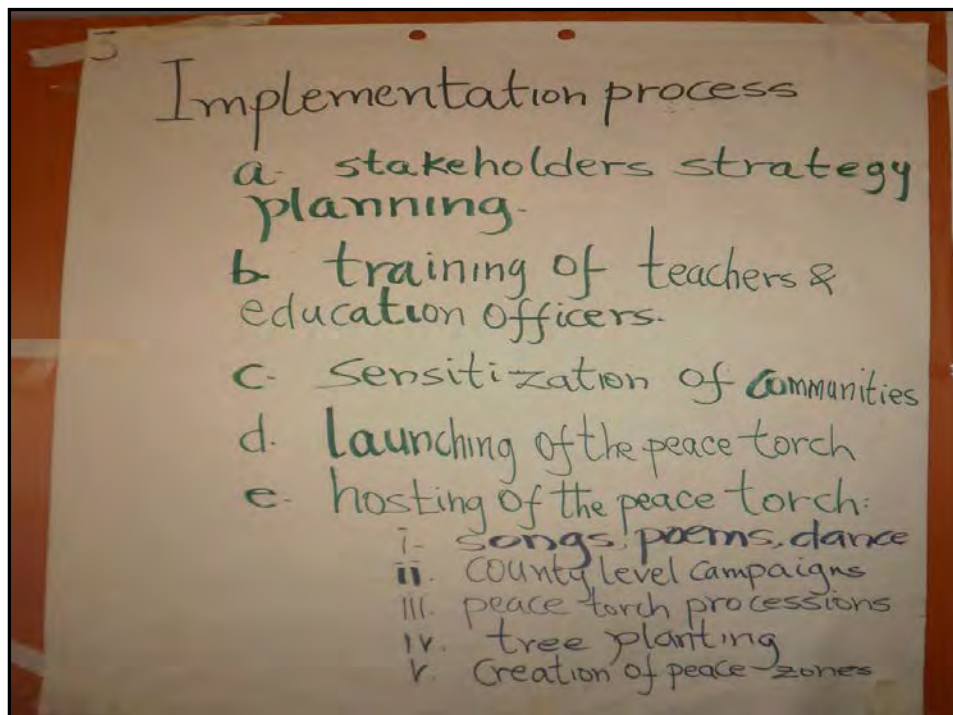 5
Implementation process
a. stakeholders strategy
planning.
b. training of teachers &
education officers.
c. Sensitization of Communities
d. Launching of the peace torch
e. hosting of the peace torch:
i. songs, poems, dance
ii. County level Campaigns
iii. peace torch processions
iv. tree planting
v. Creation of peace zones